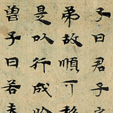 子曰君子
弟故順可
是以行成
曾子曰若